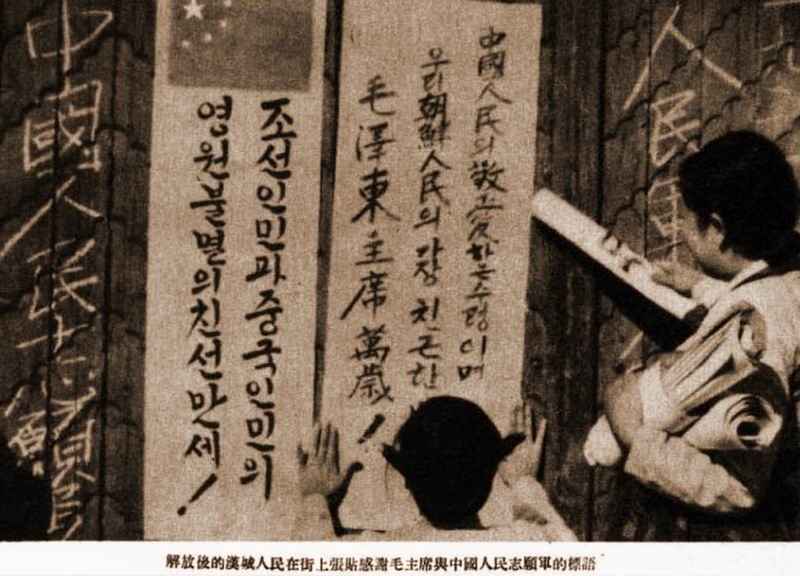 人民軍
中國人民의敬愛하는수령이며
우리朝鮮人民의가장친근한
毛澤東主席萬歲!
조선인민과중국인민의
영원불멸의친선만세!
中國人民志願
解放後的漢城人民在街上張貼感謝毛主席與中國人民志願軍的標語